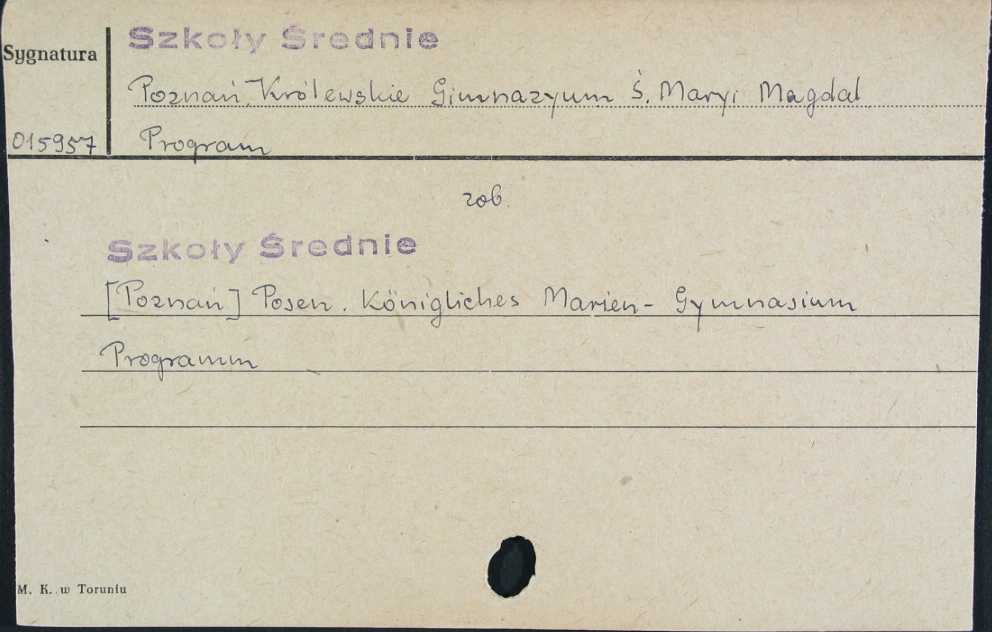 Szkoły Średnie
Sygnatura
Poznań, Królewskie Gimnazyum Ś. Maryi Magdal
015957 Program
zob.
Szkoły Średnie
[Poznań] Posen. Königliches Marien- Gymnasium
Programm
M. K. w Toruniu